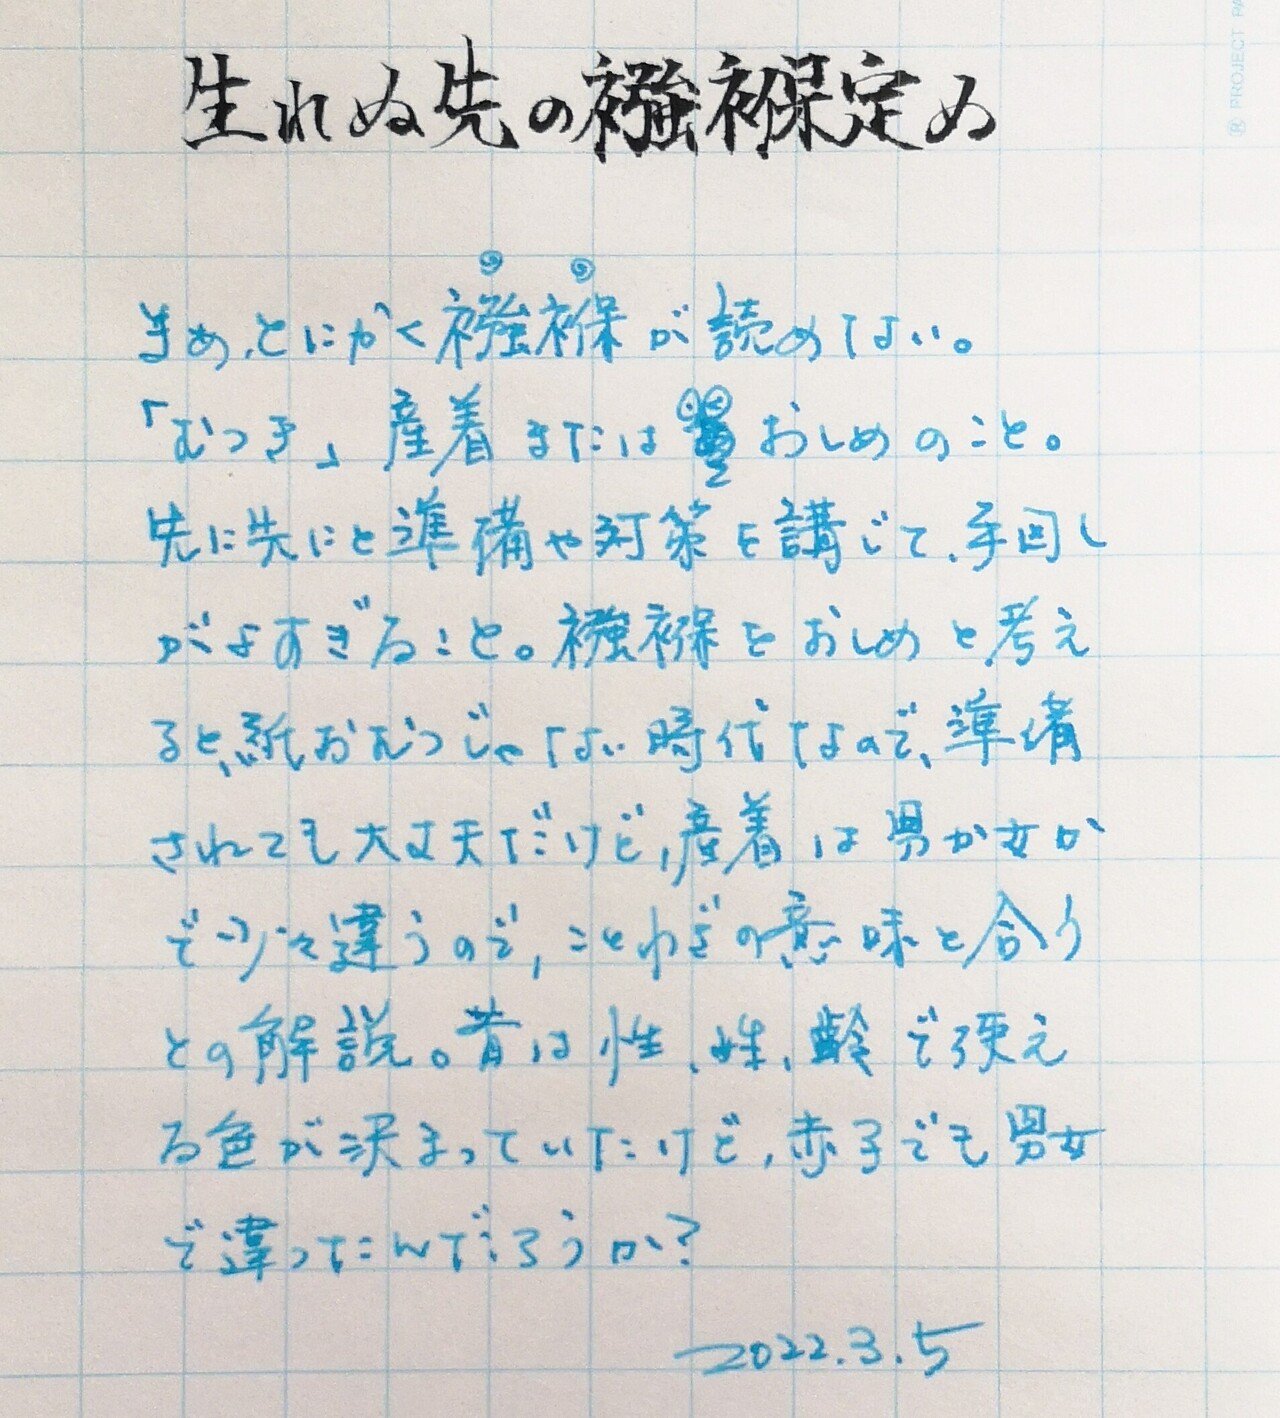 生れぬ先の襁褓定め
まぁ、とにかく襁褓が読めない。
「むつき」産着または おしめのこと。
先に先にと準備や対策を講じて、手回し
がよすぎること。襁褓をおしめと考え
ると、紙おむつじゃない時代なので、準備
されても大丈夫だけど、産着は男か女か
で少々違うので、ことわざの意味と合う
との解説。昔は性、姓、齢で使え
る色が決まっていたけど、赤子でも男女
で違ったんだろうか?
2022.3.5
® PROJECT PA